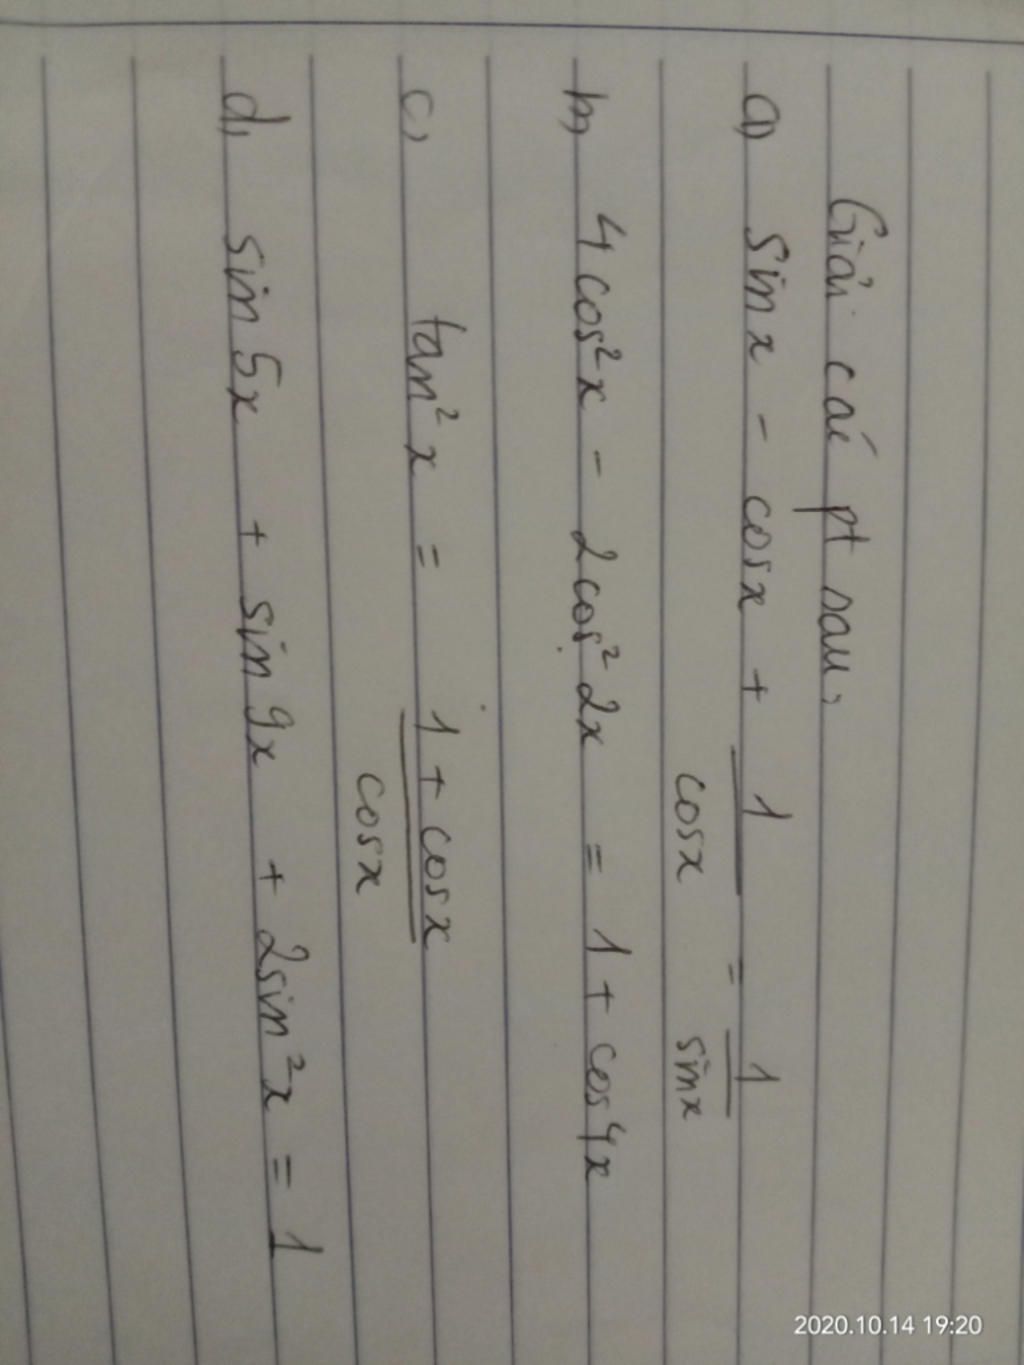 Giải các pt sau,
a, sin x - cosx + 1/cosx = 1/sinx
b, 4cos²x - 2cos²2x = 1 + cos4x
c, tan²x = (1 + cosx)/cosx
d, sin5x + sin9x + 2sin²x = 1
2020.10.14 19:20